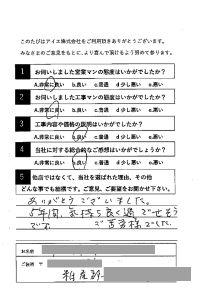 このたびはアイエ株式会社をご利用頂きありがとうございます。
みなさまのご意見をもとに、より良いで頂けるよう努めて参ります。
1 お伺いしました営業マンの態度はいかがでしたか？
A.非常に良い B.良い C.普通 d 少し悪い e.悪い
2 お伺いしました工事マンの態度はいかがでしたか？
A.非常に良い B.良い C.普通 d 少し悪い e.悪い
3 工事内容や価格の説明はいかがでしたか？
A.非常に良い B.良い C.普通 d 少し悪い e.悪い
4 当社に対する総合的なご感想はいかがでしょうか？
A.非常に良い B.良い C.普通 d 少し悪い e.悪い
5 他店ではなくて、当社を選ばれた理由、その他
どんな事でも結構です。ご意見、ご要望をお聞かせ下さい。
ありがとうございました。
5年間、気持ち良く過ごせそう
です ご苦労様でした。
お名前
ご住所 〒